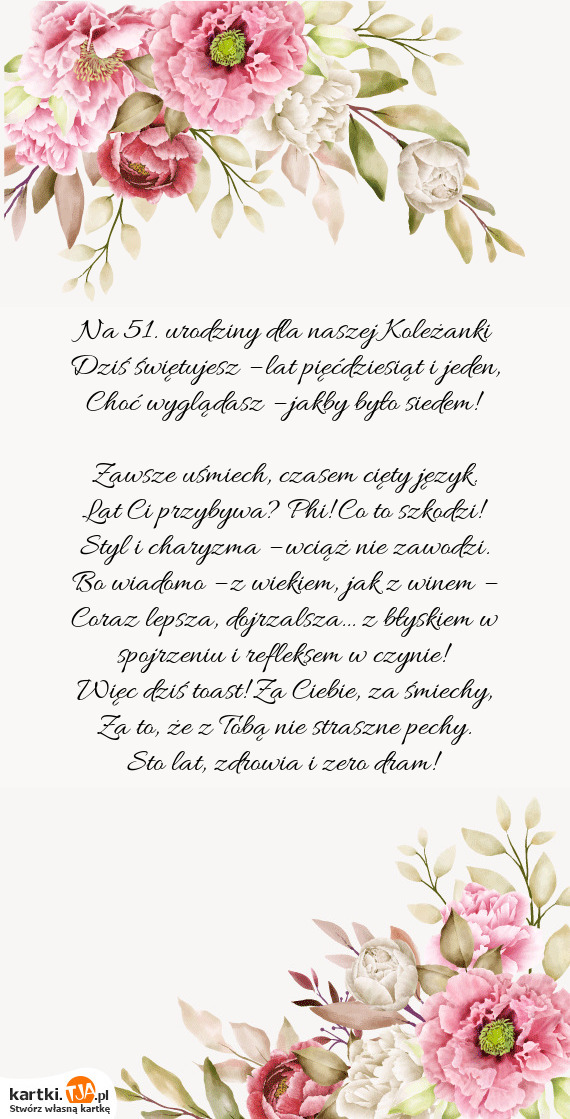 Na 51. urodziny dla naszej Koleżanki
Dziś świętujesz – lat pięćdziesiąt i jeden,
Choć wyglądasz – jakby było siedem!
Zawsze uśmiech, czasem cięty język.
Lat Ci przybywa? Phi! Co to szkodzi!
Styl i charyzma – wciąż nie zawodzi.
Bo wiadomo – z wiekiem, jak z winem –
Coraz lepsza, dojrzalsza... z błyskiem w
spojrzeniu i refleksem w czynie!
Więc dziś toast! Za Ciebie, za śmiechy,
Za to, że z Tobą nie straszne pechy.
Sto lat, zdrowia i zero dram!
kartki.TJA.pl
Stwórz własną kartkę